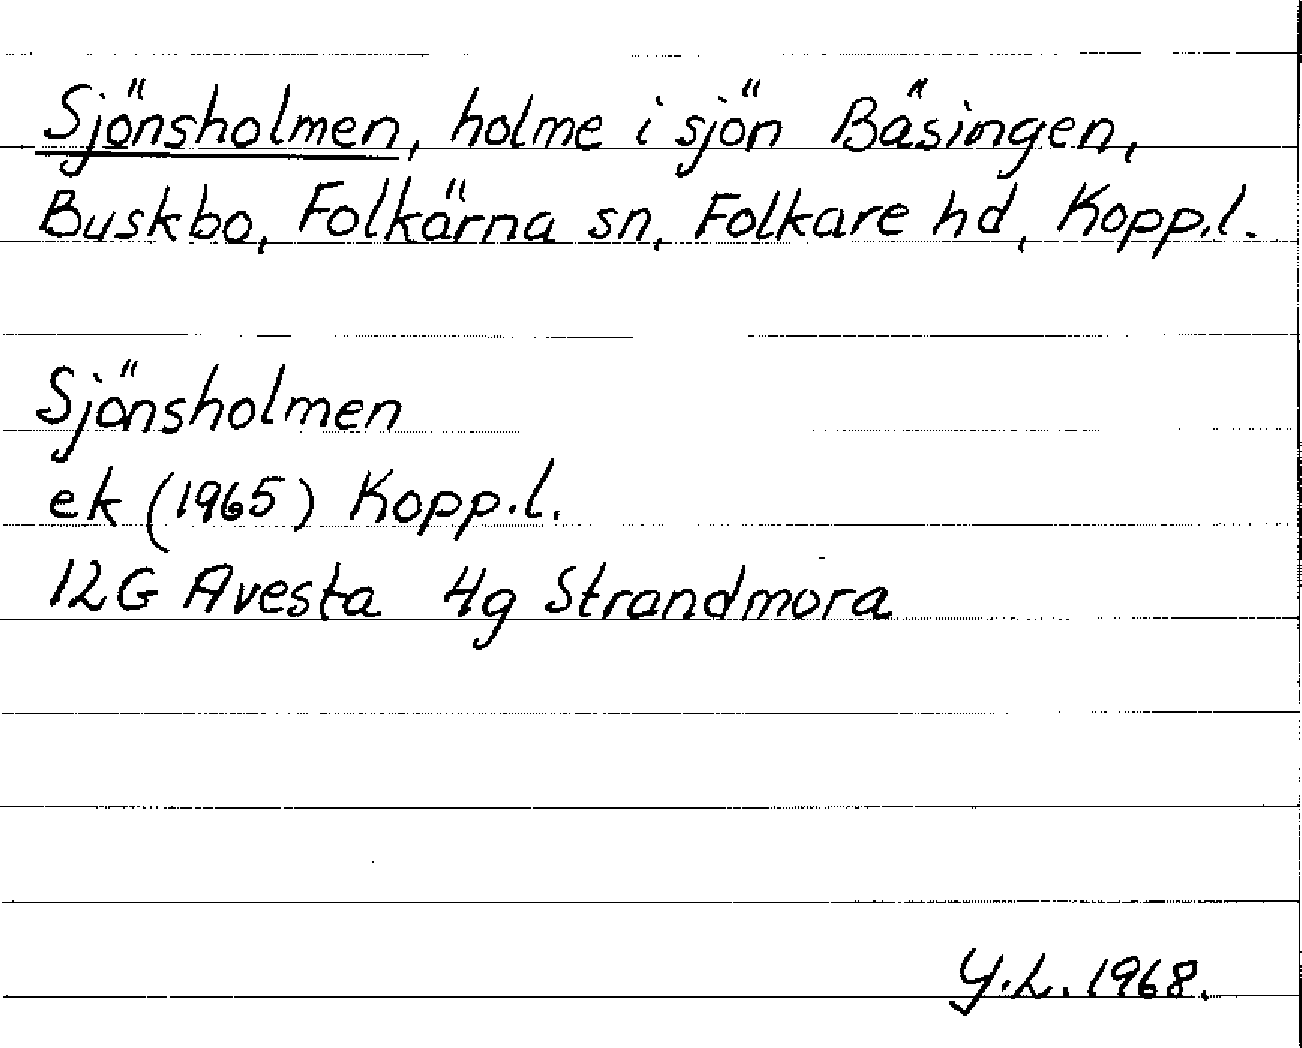 Sjönsholmen, holme i sjön Bäsingen,
Buskbo, Folkärna sn, Folkare hd, Kopp.l.
Sjönsholmen
ek (1965) Kopp.l.
12G Avesta 4g Strandmora
Y.L. 1968.